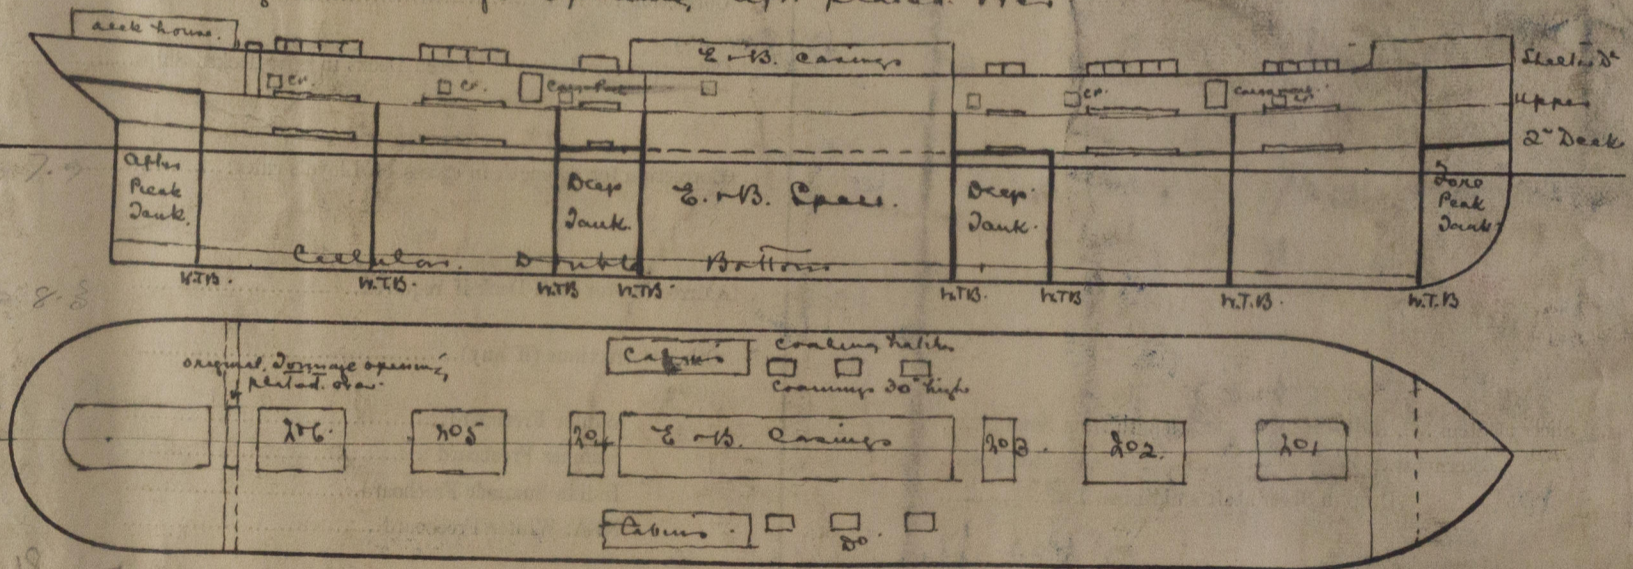 deck house.
E + B. Casings
Shelter Dk
Cr.
Cr.
Cr.
Upper
2nd Deck
After
Peak
Tank.
Deep
Tank.
E. + B. Space.
Deep
Tank.
Fore
Peak
Tank.
Cellular. Double Bottom
W.T.B.
W.T.B.
W.T.B
W.T.B
W.T.B.
W.T.B
W.T.B.
W.T.B
original Tonnage opening
plated over.
Cabins
Coaling hatches
Coamings 30" high
No6.
No5
No4
E + B. Casings
No3.
No2.
No1
Cabins.
Do